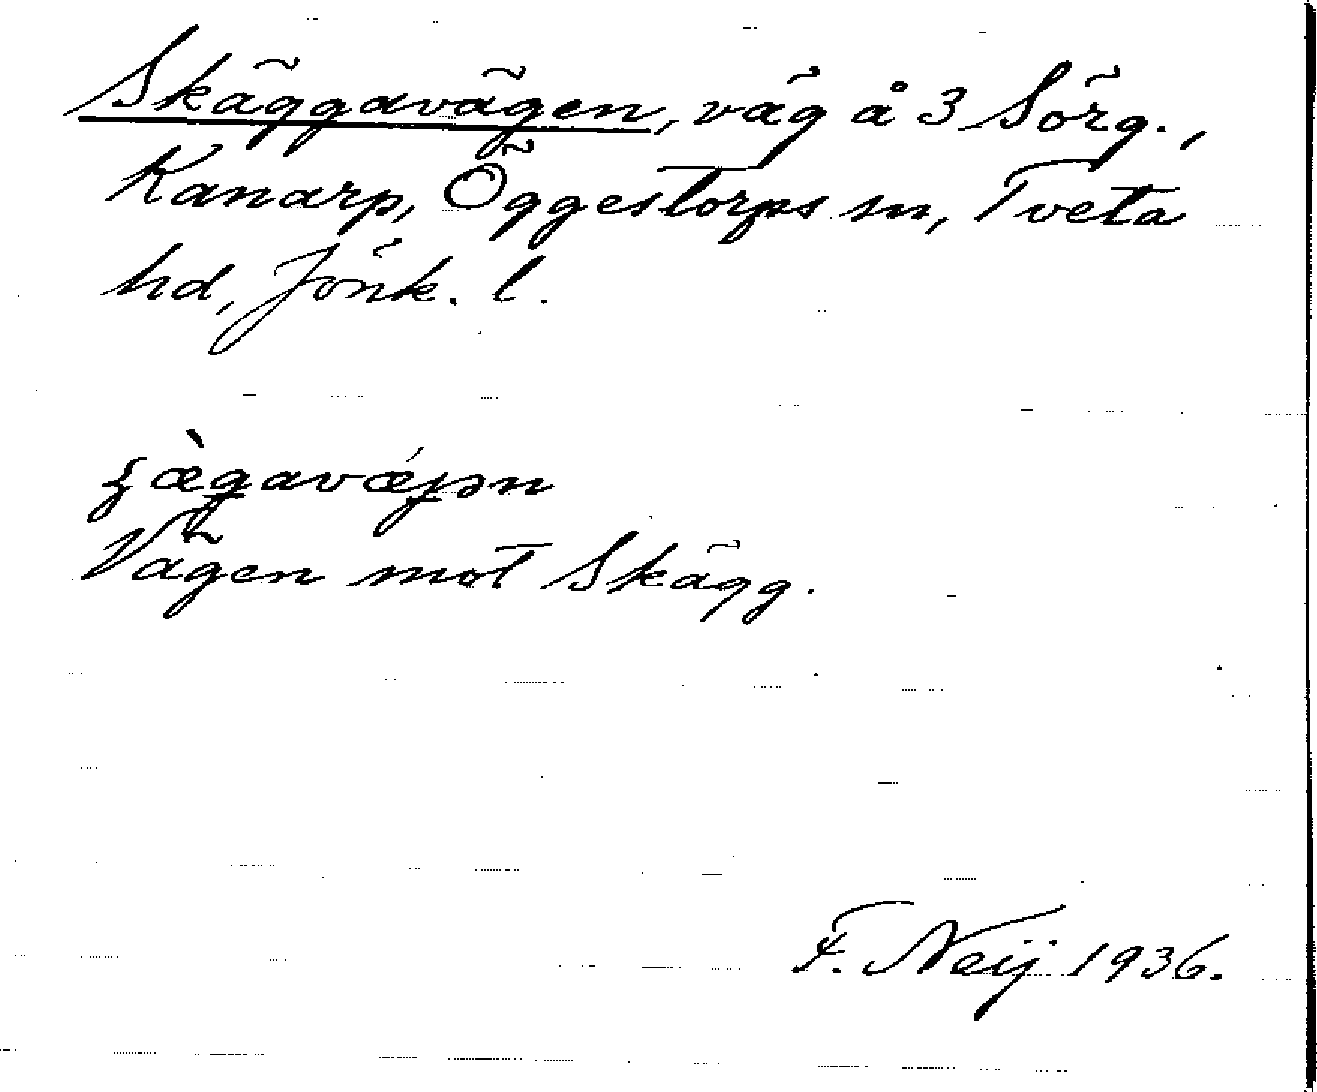 Skäggavägen, väg å 3 Sörg.,
Kanarp, Öggestorps sn, Tveta
hd, Jönk. l.
Vägen mot Skägg.
F. Neij 1936.